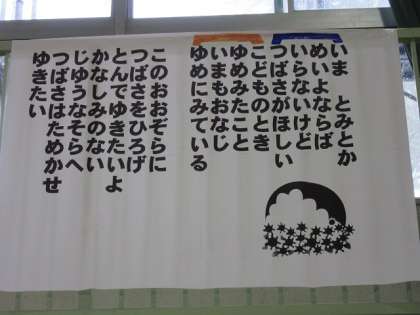 いま　とみとか
めいよならば
いらないけど
つばさがほしい
こどものとき
ゆめみたこと
いまもおなじ
ゆめにみている
このおおぞらに
つばさをひろげ
とんでゆきたいよ
かなしみのない
じゆうなそらへ
つばさはためかせ
ゆきたい